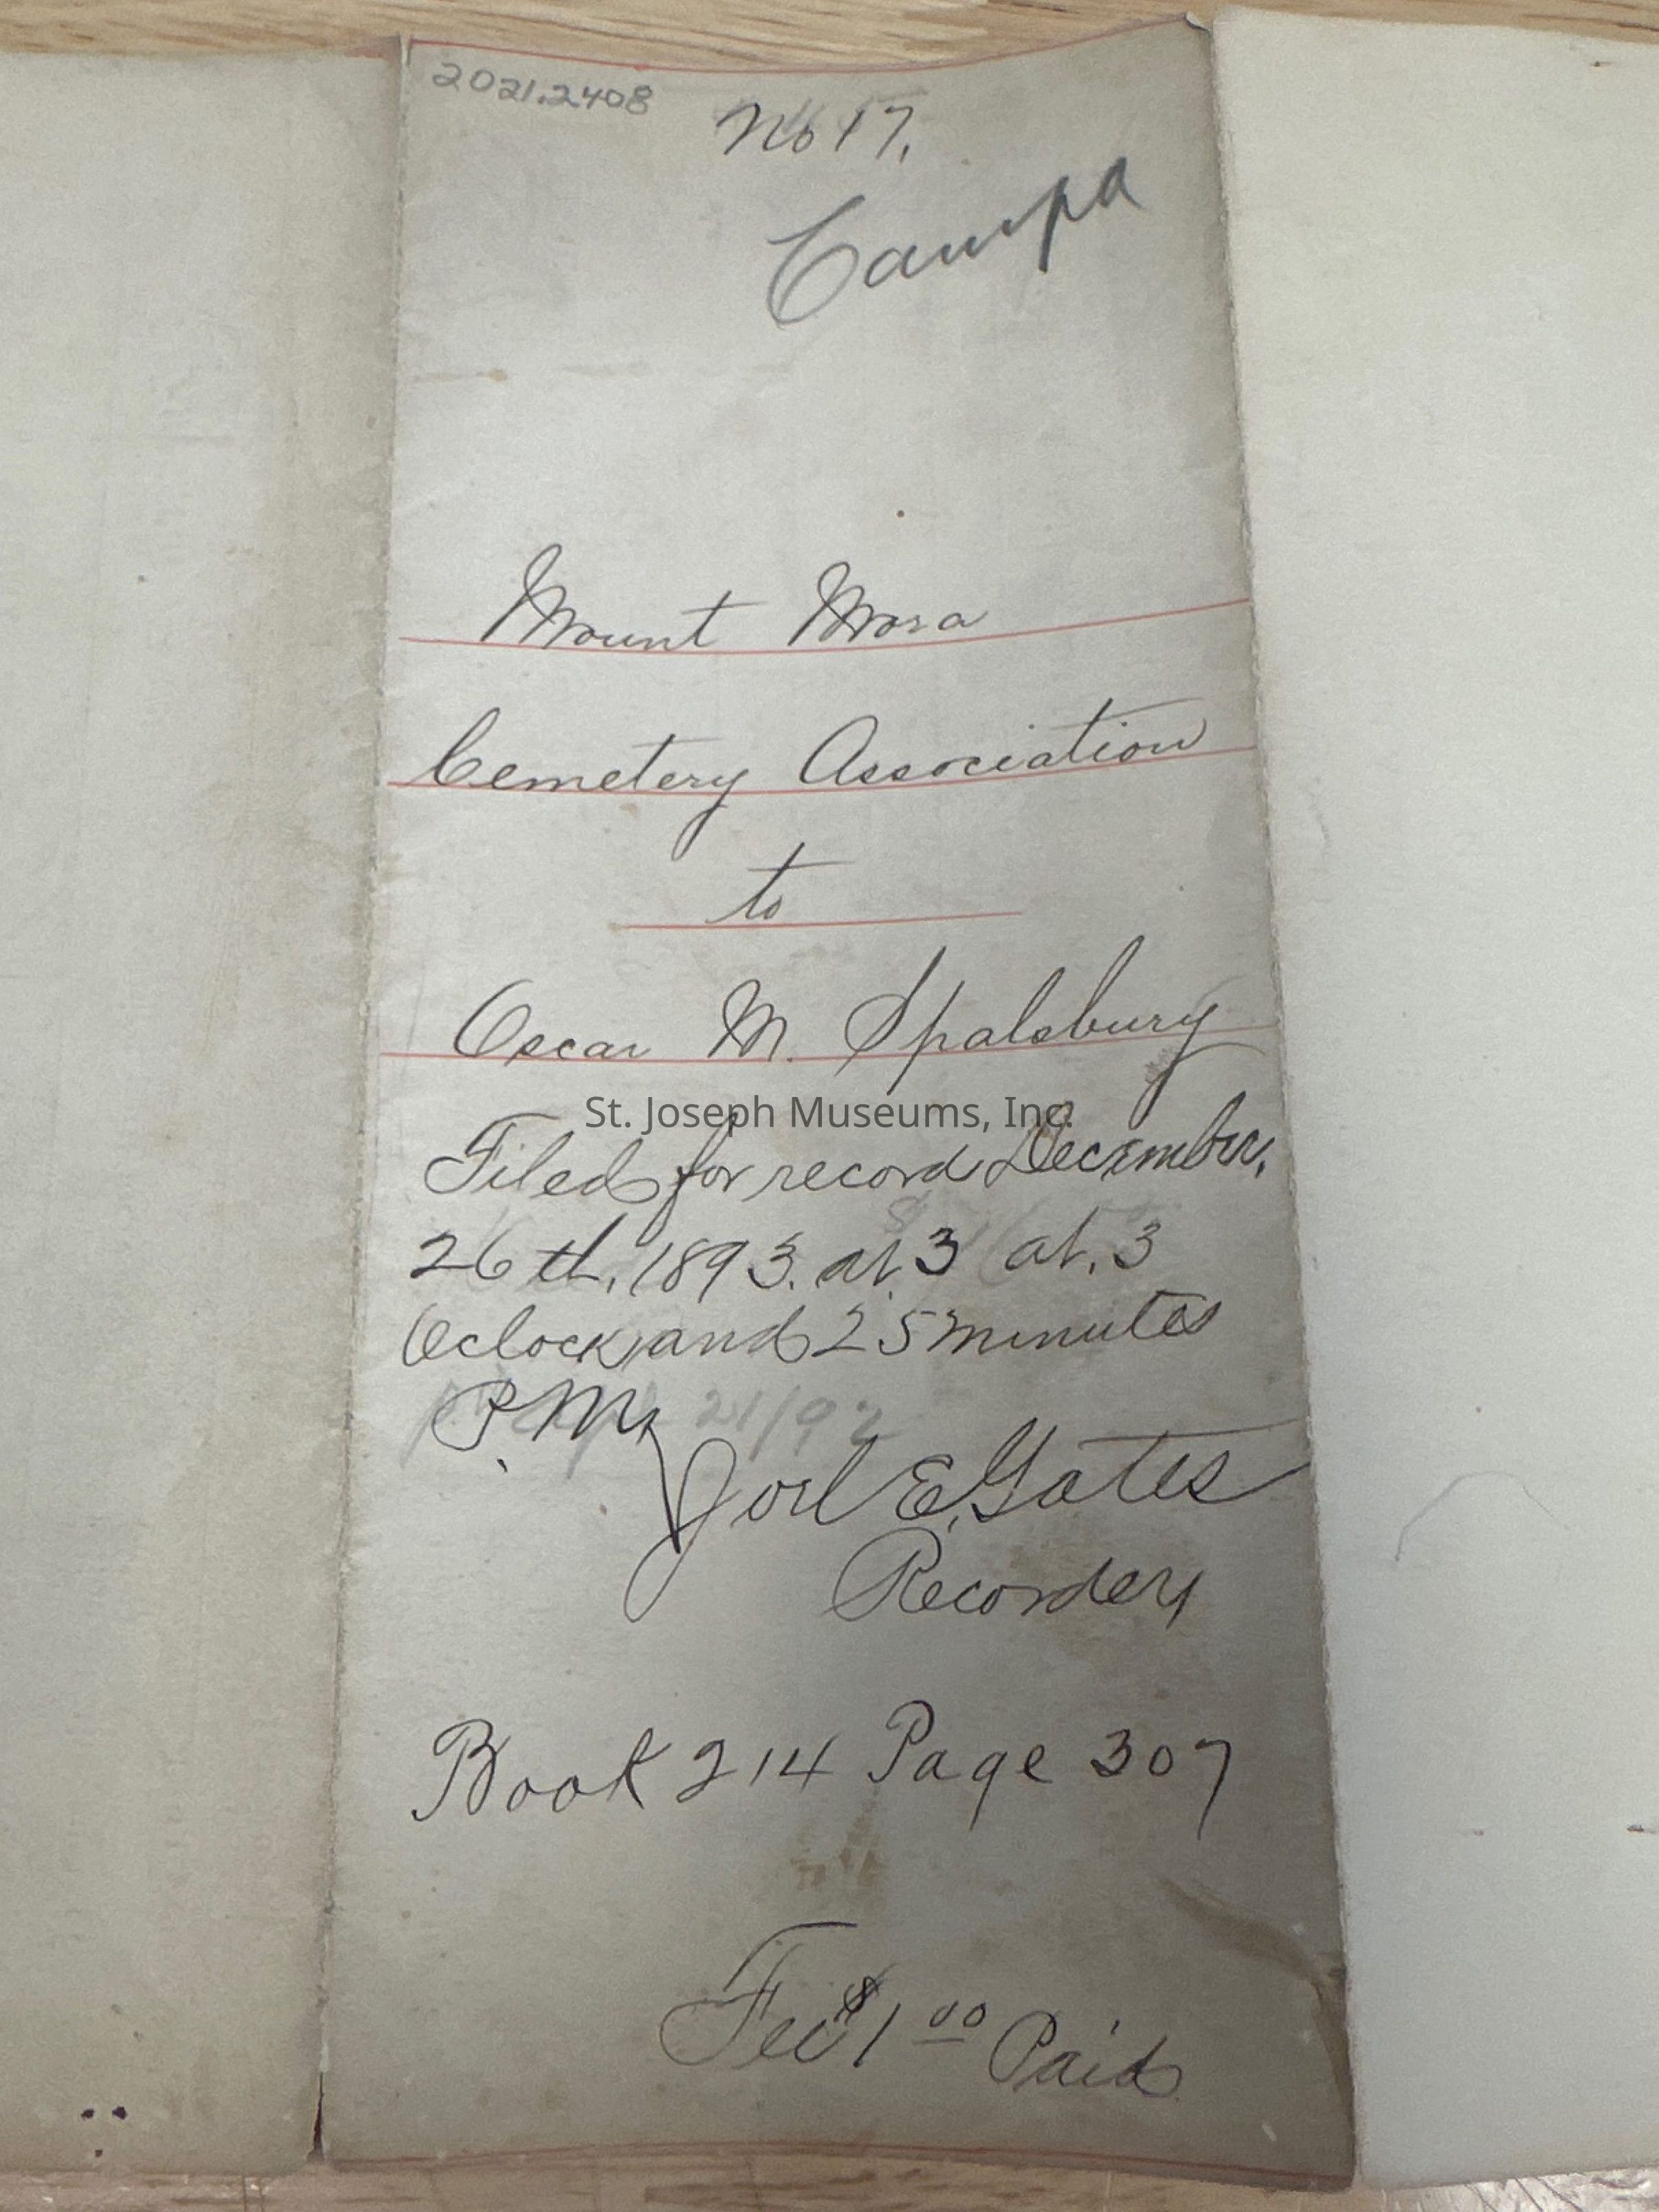 2021.2408
No 17.
Campa
Mount Mora
Cemetery Association
to
Oscar M. Spalsbury
St. Joseph Museums, Inc.
Filed for record December.
26th. 1893. at. 3 at. 3
Oclock and 25 minutes
P.M.
21/92
Joel E. Gates
Recorder
Book 214 Page 307
Fee $1 00 Paid